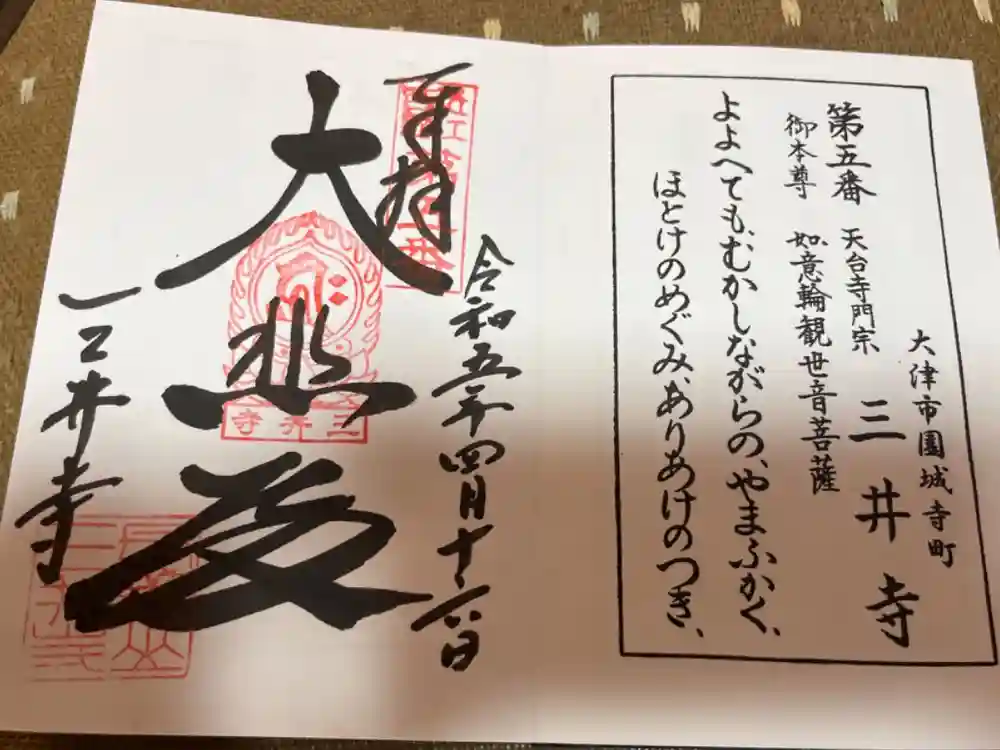 大津市園城寺町
第五番 天台寺門宗 三井寺
御本尊 如意輪観世音菩薩
よよへても、むかしながらの、やまふかく、
ほとけのめぐみ、ありあけのつき、
奉拝
令和五年四月十六日
大悲殿
三井寺
三井寺